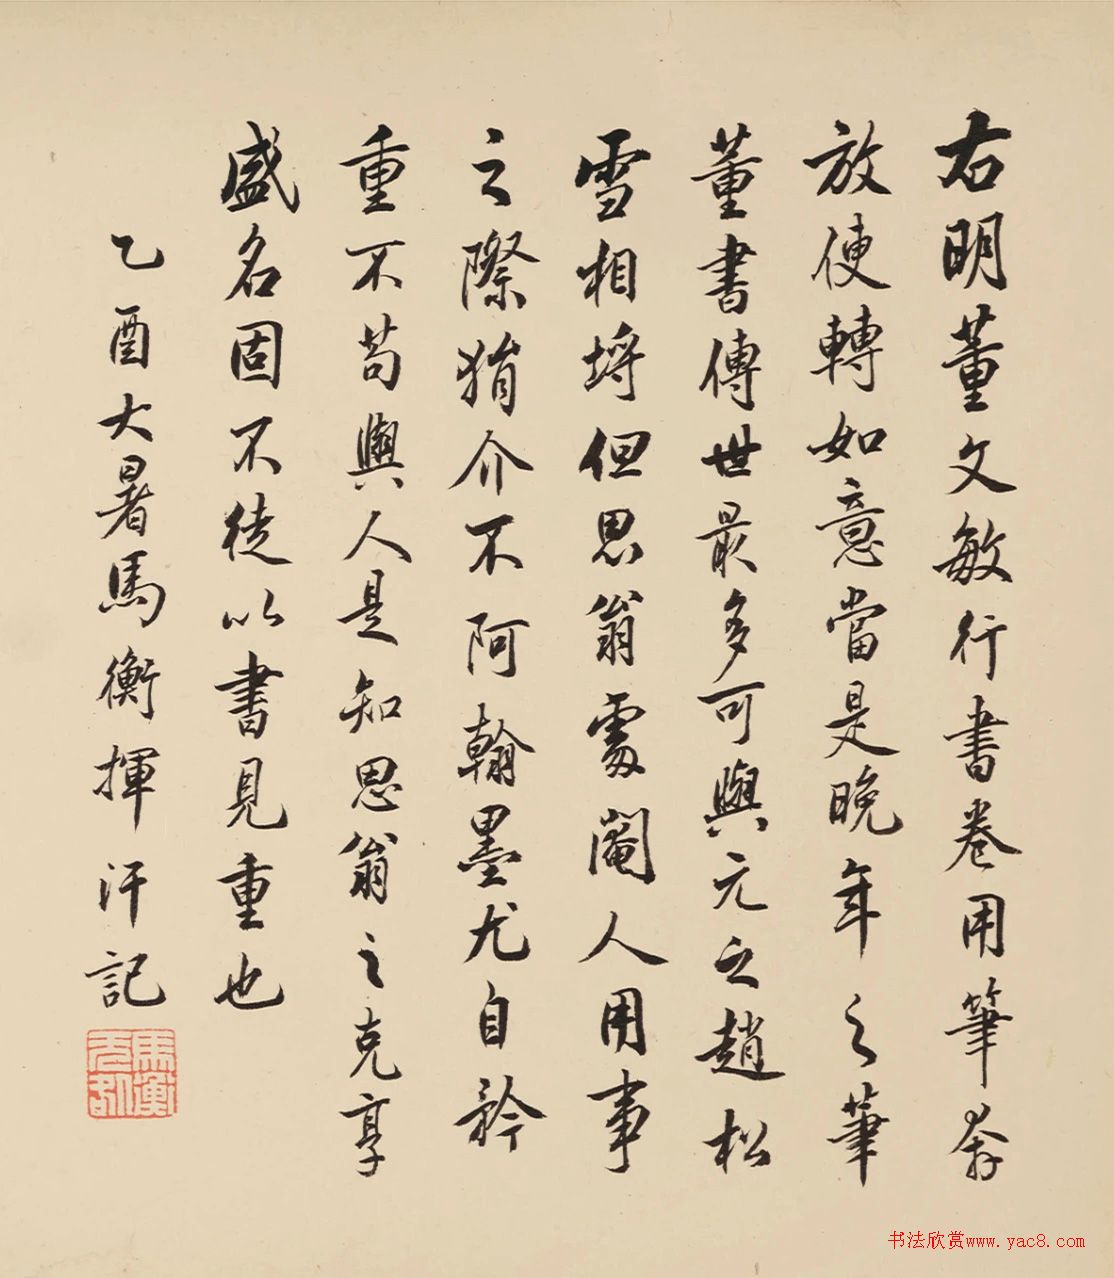 右明董文敏行書卷用筆奔
放使轉如意當是晚年之筆
董書傳世最多可與元之趙松
雪相埒但思翁處閹人用事
之際狷介不阿翰墨尤自矜
重不苟與人是知思翁之克享
盛名固不徒以書見重也
乙酉大暑馬衡揮汗記
馬衡
无咎
书法欣赏www.yac8.com